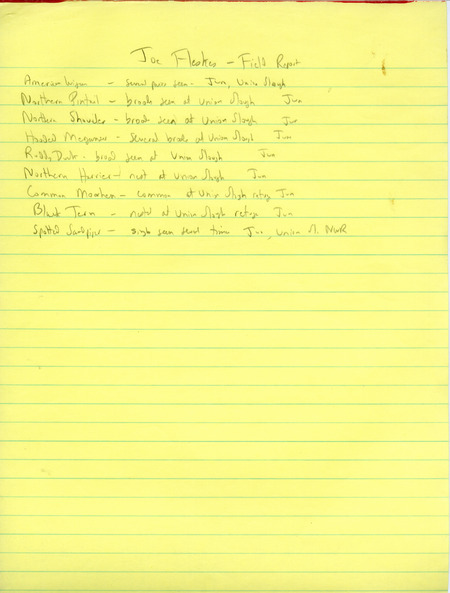 Joe Fleskes - Field Report
American Wigeon - several pairs seen - Jun, Union Slough
Northern Pintail - broods seen at Union Slough Jun
Northern Shoveler - broods seen at Union Slough Jun
Hooded Merganser - several broods at Union Slough Jun
Ruddy Duck - brood seen at Union Slough Jun
Northern Harrier - nest at Union Slough Jun
Common Moorhen - common at Union Slough refuge Jun
Black Tern - nested at Union Slough refuge Jun
Spotted Sandpiper - single seen several times Jun, Union Sl. NWR